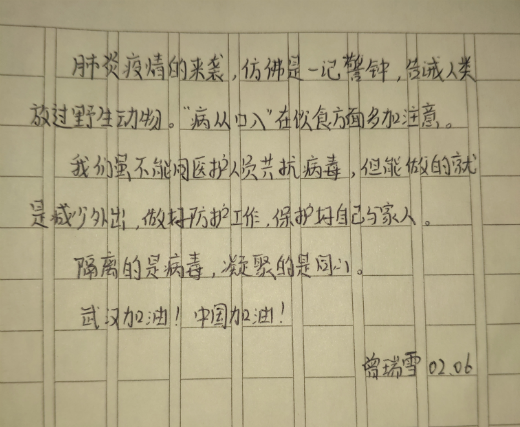 肺炎疫情的来袭，仿佛是一记警钟，告诫人类
放过野生动物。“病从口入”在饮食方面多加注意。
我们虽不能同医护人员共抗病毒，但能做的就
是减少外出，做好防护工作，保护好自己与家人。
隔离的是病毒，凝聚的是同心。
武汉加油！中国加油！
曾瑞雪 02.06